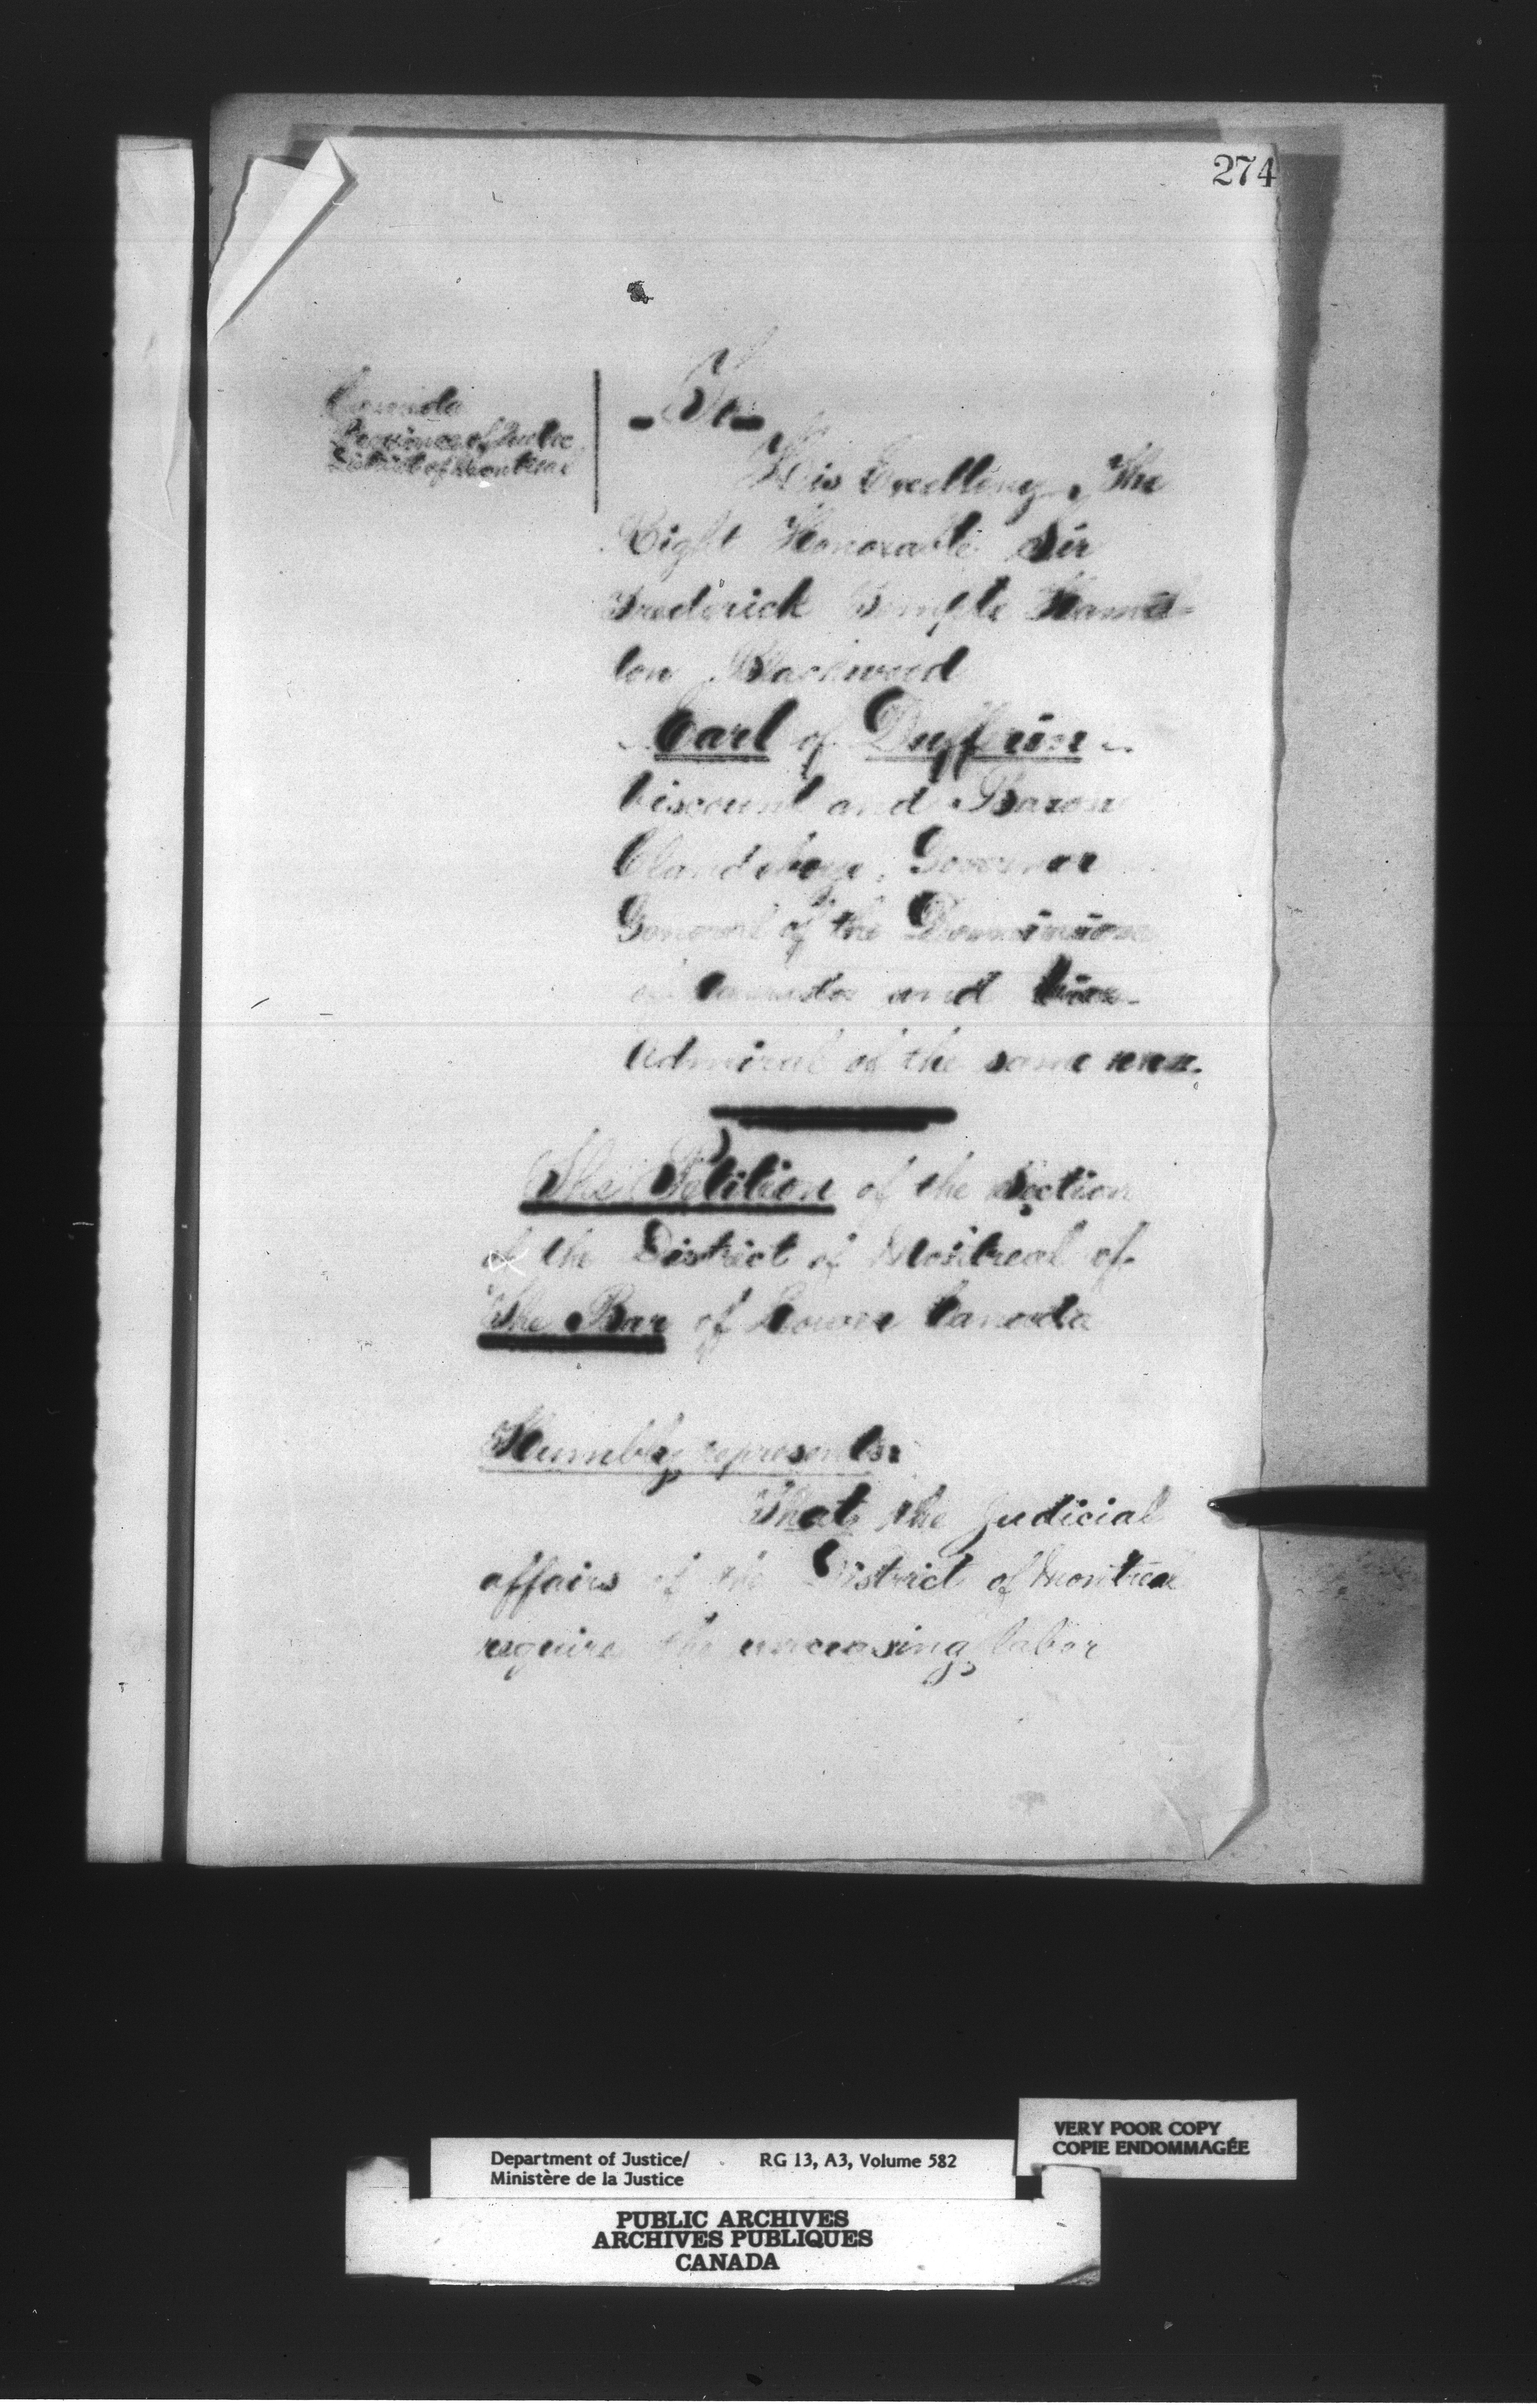 274
Canada
Province of Quebec
District of Montreal
- To -
His Excellency, The
Right Honorable Sir
Frederick Temple Hamil-
ton Blackwood
Earl of Dufferin
Viscount and Baron
Clandeboye, Governor
General of the Dominion
of Canada and Vice-
Admiral of the same
The Petition of the Section
of the District of Montreal of
The Bar of Lower Canada
Humbly represents:
That the Judicial
affairs of the District of Montreal
require the unceasing labor
VERY POOR COPY
COPIE ENDOMMAGÉE
Department of Justice/ RG 13, A3, Volume 582
Ministère de la Justice
PUBLIC ARCHIVES
ARCHIVES PUBLIQUES
CANADA